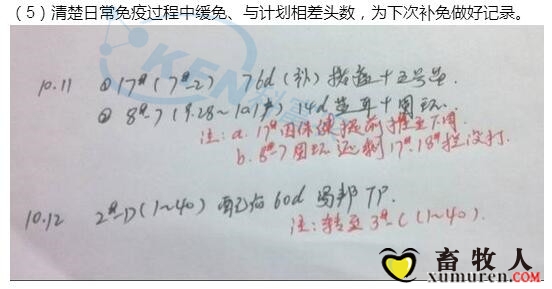 （5）清楚日常免疫过程中缓免、与计划相差头数，为下次补免做好记录。
10.11 ① 17# (7#-2) 76d (补)
② 8#-7 (9.28~10.1产) 14d 蓝耳+圆环.
注: a. 17#因保健提前
b. 8#-7圆环还剩17#.18#栏没打.
10.12 2#-D (1~40) 60d TP.
注: 转至3#-C (1~40).
畜牧人
xumuren.com